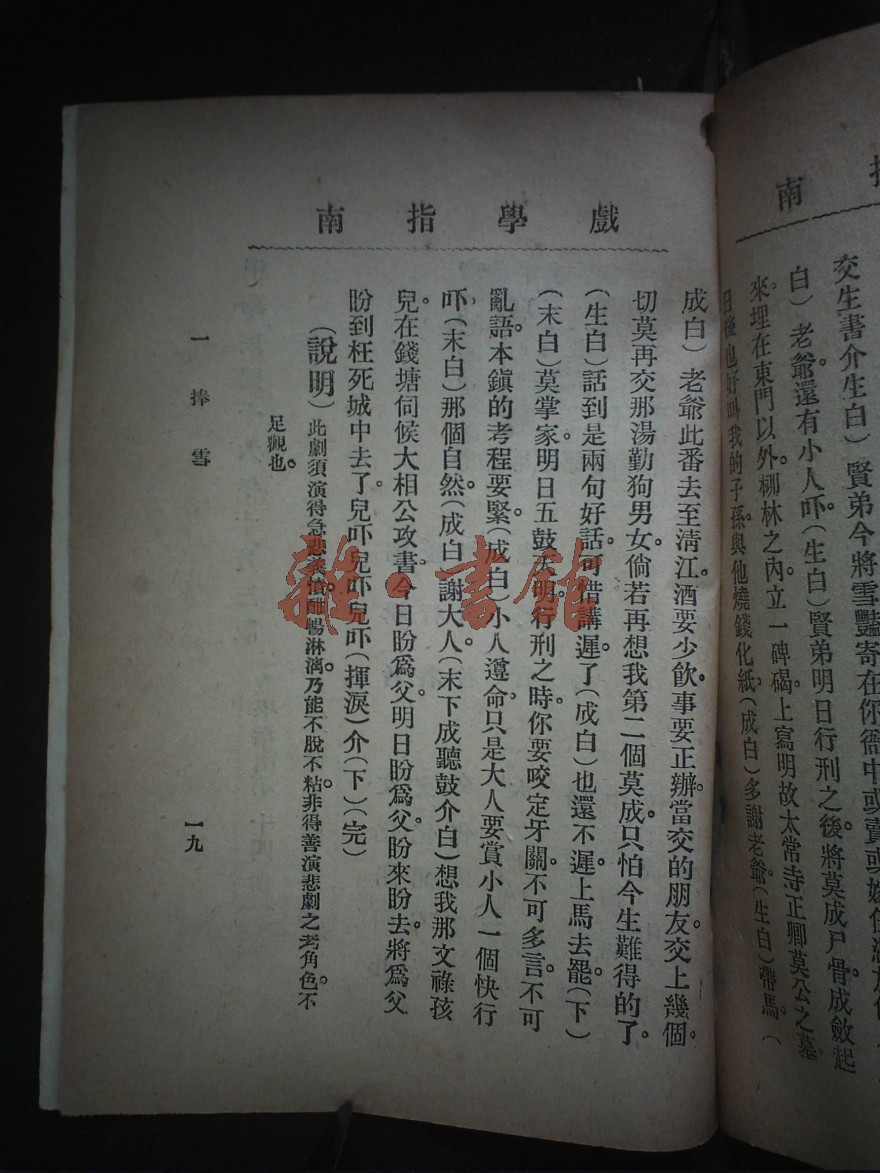 南
交生書介生白）賢弟今將雪豔寄在你衙中或賣或嫁任憑
白）老爺還有小人吓。（生白）賢弟明日行刑之後。將莫成尸骨成斂起
來。埋在東門以外。柳林之內。立一碑碣。上寫明故太常寺正卿莫公之墓。
日後也好叫我的子孫。與他燒錢化紙。（成白）多謝老爺。（生白）帶馬。（
戲學指南
成白）老爺此番去至清江。酒要少飲。事要正辦。當交的朋友。交上幾個。
切莫再交那湯勤狗男女。倘若再想我第二個莫成。只怕今生難得的了。
（生白）話到是兩句好話。可惜講遲了（成白）也還不遲。上馬去罷。（下）
（末白）莫掌家。明日五鼓天明。行刑之時。你要咬定牙關。不可多言。不可
亂語。本鎮的考程要緊。（成白）小人遵命。只是大人要賞小人一個快行
吓。（末白）那個自然。（成白）謝大人。（末下成聽鼓介白）想我那文祿孩
兒。在錢塘伺候大相公攻書。今日盼爲父。明日盼爲父。盼來盼去。將爲父
盼到枉死城中去了。兒吓兒吓兒吓（揮淚）介（下）（完）
（說明）此劇須演得急悲義憤。酣暢淋漓。乃能不脫不粘。非得善演悲劇之老角色。不
足觀也。
一捧雪
一九
雜·書館